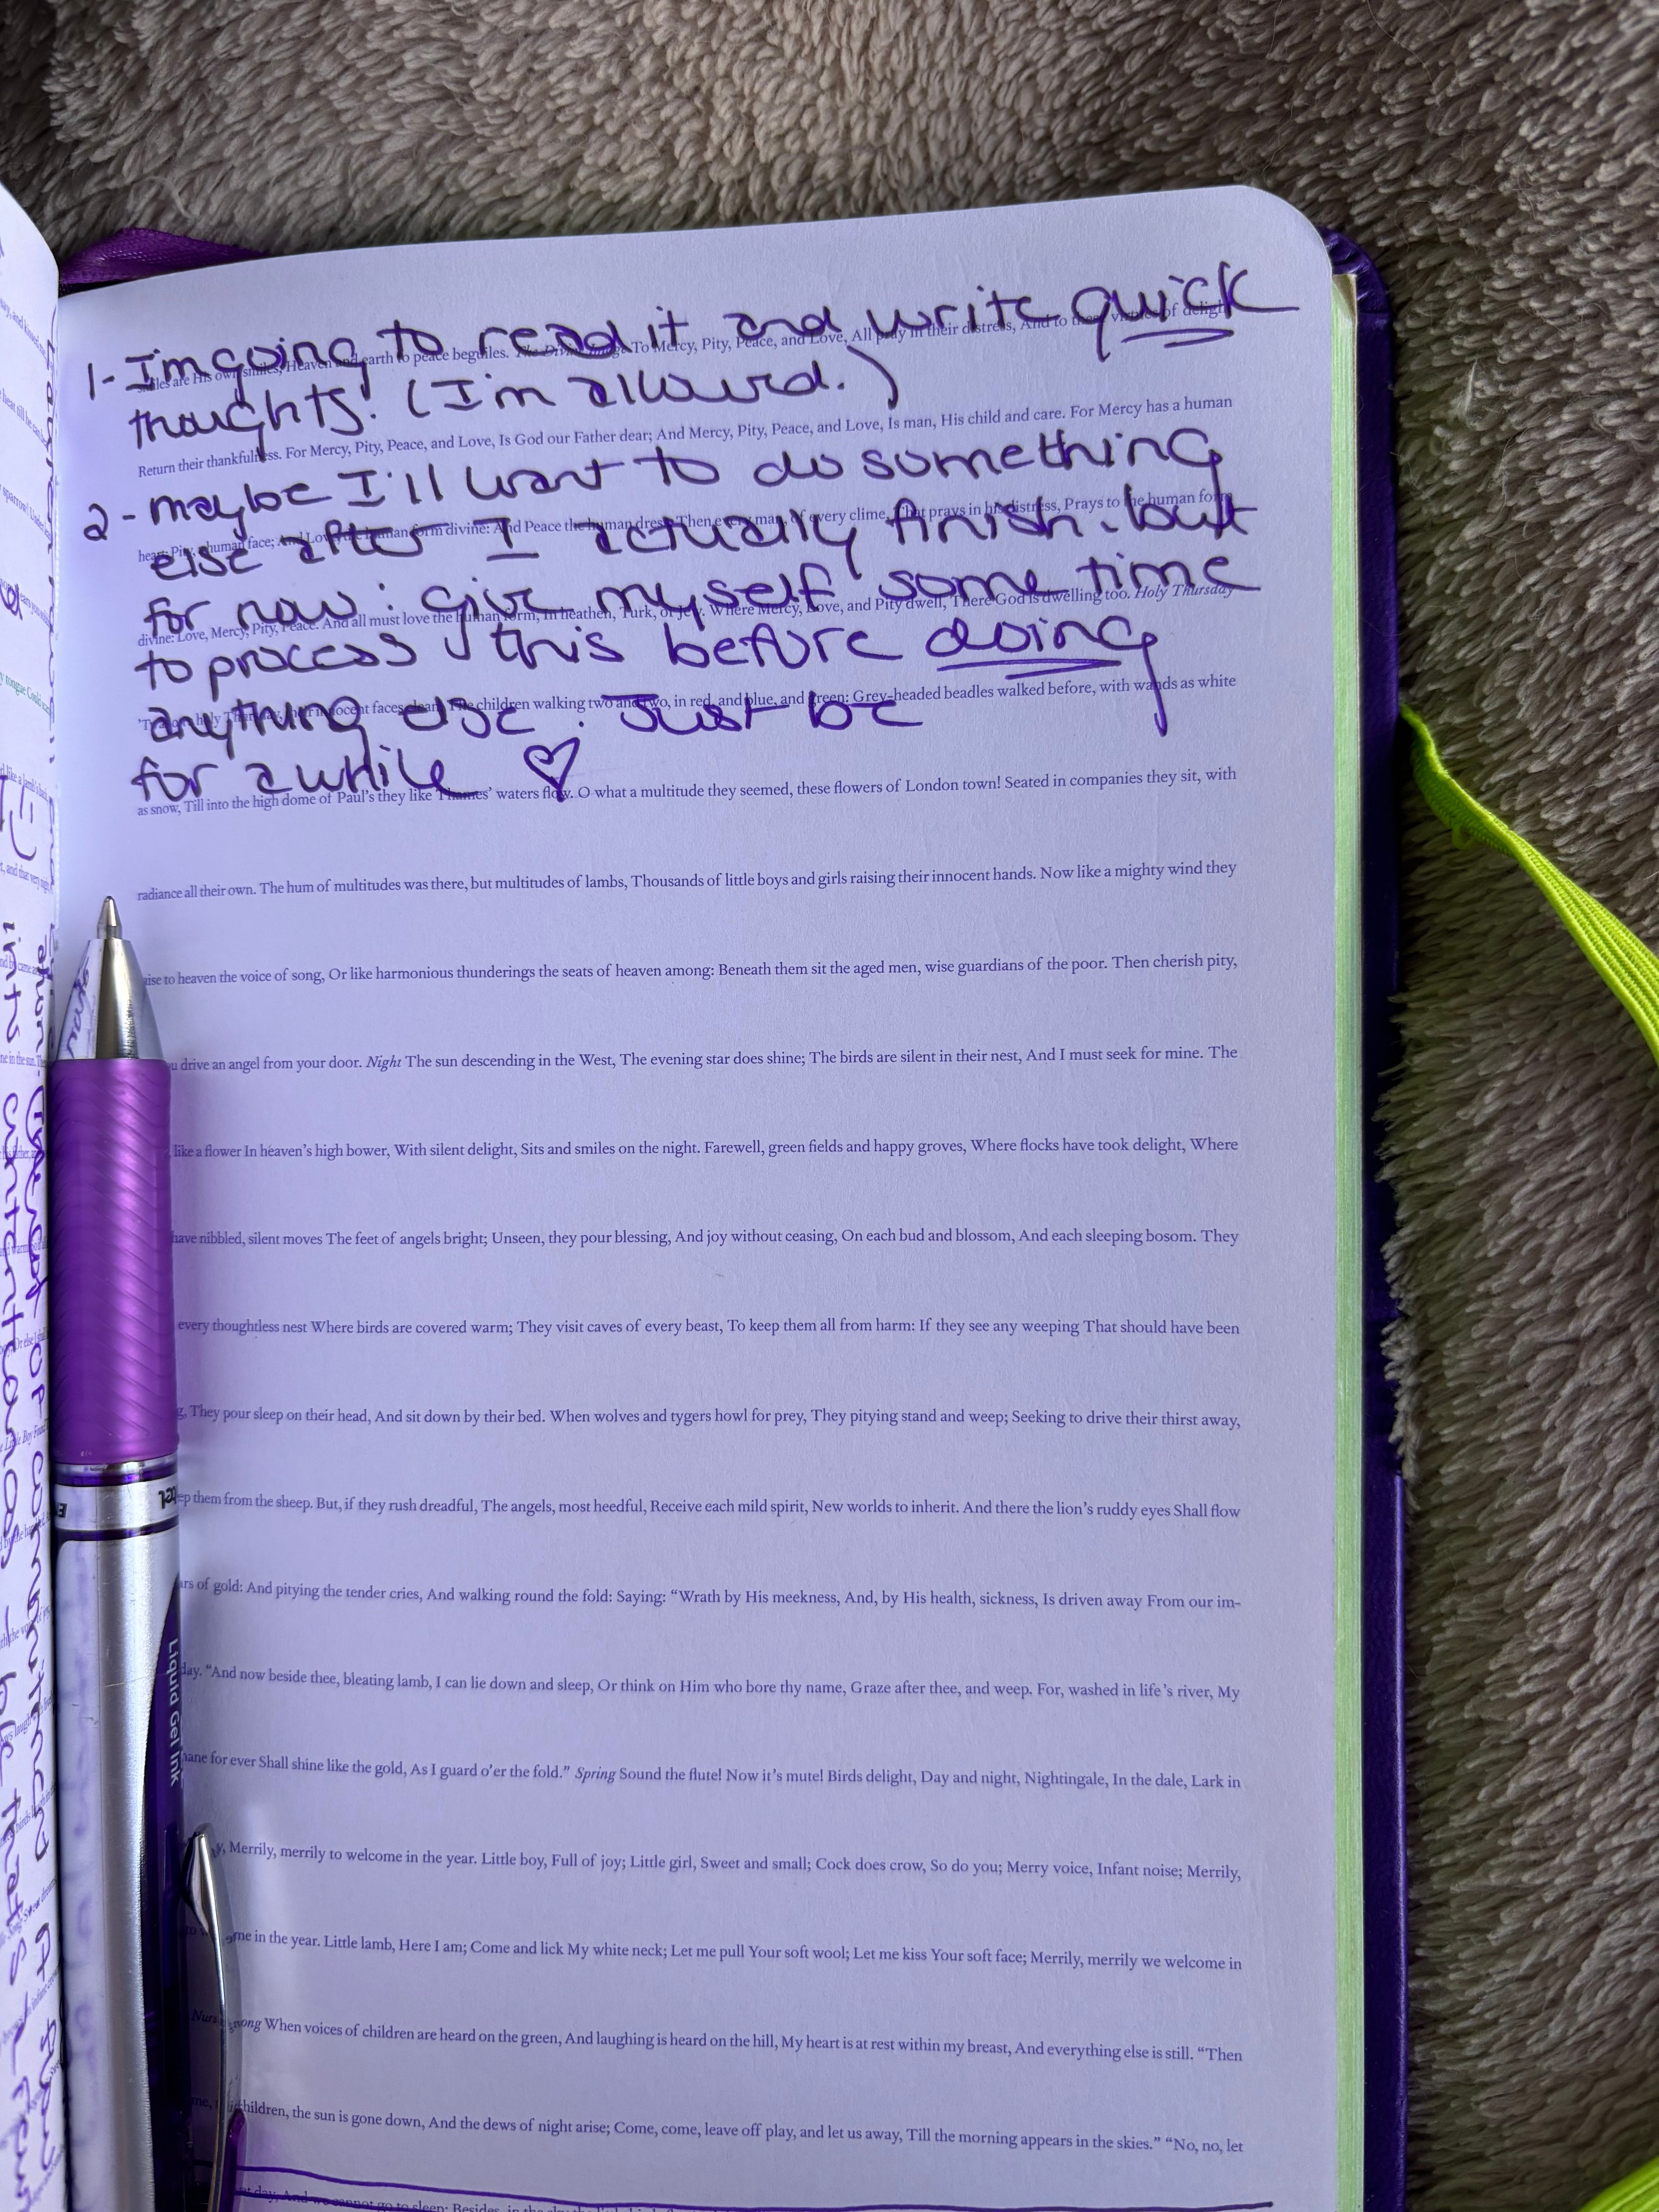 1- I'm going to read it and write quick
thoughts! (I'm allowed.)
2- maybe I'll want to do something
else after I actually finish. but
for now: give myself some time
to process this before doing
anything else. Just be
for a while ♡
smiles are His own smiles, Heaven and earth to peace beguiles. The Divine Image To Mercy, Pity, Peace, and Love, All pray in their distress, And to these virtues of delight
Return their thankfulness. For Mercy, Pity, Peace, and Love, Is God our Father dear; And Mercy, Pity, Peace, and Love, Is man, His child and care. For Mercy has a human
heart; Pity, a human face; And Love, the human form divine: And Peace the human dress. Then every man, of every clime, That prays in his distress, Prays to the human form
divine: Love, Mercy, Pity, Peace. And all must love the human form, In heathen, Turk, or Jew. Where Mercy, Love, and Pity dwell, There God is dwelling too. Holy Thursday
'Twas on a holy Thursday, their innocent faces clean, The children walking two and two, in red, and blue, and green: Grey-headed beadles walked before, with wands as white
as snow, Till into the high dome of Paul's they like Thames' waters flow. O what a multitude they seemed, these flowers of London town! Seated in companies they sit, with
radiance all their own. The hum of multitudes was there, but multitudes of lambs, Thousands of little boys and girls raising their innocent hands. Now like a mighty wind they
raise to heaven the voice of song, Or like harmonious thunderings the seats of heaven among: Beneath them sit the aged men, wise guardians of the poor. Then cherish pity,
drive an angel from your door. Night The sun descending in the West, The evening star does shine; The birds are silent in their nest, And I must seek for mine. The
like a flower In heaven's high bower, With silent delight, Sits and smiles on the night. Farewell, green fields and happy groves, Where flocks have took delight, Where
have nibbled, silent moves The feet of angels bright; Unseen, they pour blessing, And joy without ceasing, On each bud and blossom, And each sleeping bosom. They
every thoughtless nest Where birds are covered warm; They visit caves of every beast, To keep them all from harm: If they see any weeping That should have been
They pour sleep on their head, And sit down by their bed. When wolves and tygers howl for prey, They pitying stand and weep; Seeking to drive their thirst away,
them from the sheep. But, if they rush dreadful, The angels, most heedful, Receive each mild spirit, New worlds to inherit. And there the lion's ruddy eyes Shall flow
of gold: And pitying the tender cries, And walking round the fold: Saying: "Wrath by His meekness, And, by His health, sickness, Is driven away From our im-
day. "And now beside thee, bleating lamb, I can lie down and sleep, Or think on Him who bore thy name, Graze after thee, and weep. For, washed in life's river, My
mane for ever Shall shine like the gold, As I guard o'er the fold." Spring Sound the flute! Now it's mute! Birds delight, Day and night, Nightingale, In the dale, Lark in
Merrily, merrily to welcome in the year. Little boy, Full of joy; Little girl, Sweet and small; Cock does crow, So do you; Merry voice, Infant noise; Merrily,
in the year. Little lamb, Here I am; Come and lick My white neck; Let me pull Your soft wool; Let me kiss Your soft face; Merrily, merrily we welcome in
When voices of children are heard on the green, And laughing is heard on the hill, My heart is at rest within my breast, And everything else is still. "Then
children, the sun is gone down, And the dews of night arise; Come, come, leave off play, and let us away, Till the morning appears in the skies." "No, no, let
Liquid Gel Ink